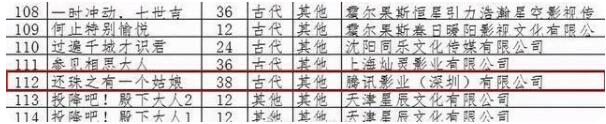 108 一时冲动,七世吉 36 古代 其他 霍尔果斯恒星引力浩瀚星空影视传
109 何止特别愉悦 12 古代 其他 霍尔果斯春日暖阳影视文化有限公
110 过遍千城才识君 24 古代 其他 沈阳同乐文化传媒有限公司
111 参见相思大人 36 古代 其他 上海灿灵影业有限公司
112 还珠之有一个姑娘 38 古代 其他 腾讯影业(深圳)有限公司
113 投降吧!殿下大人2 12 其他 其他 天津星辰文化有限公司
114 投降吧!殿下大人1 12 其他 其他 天津星辰文化有限公司